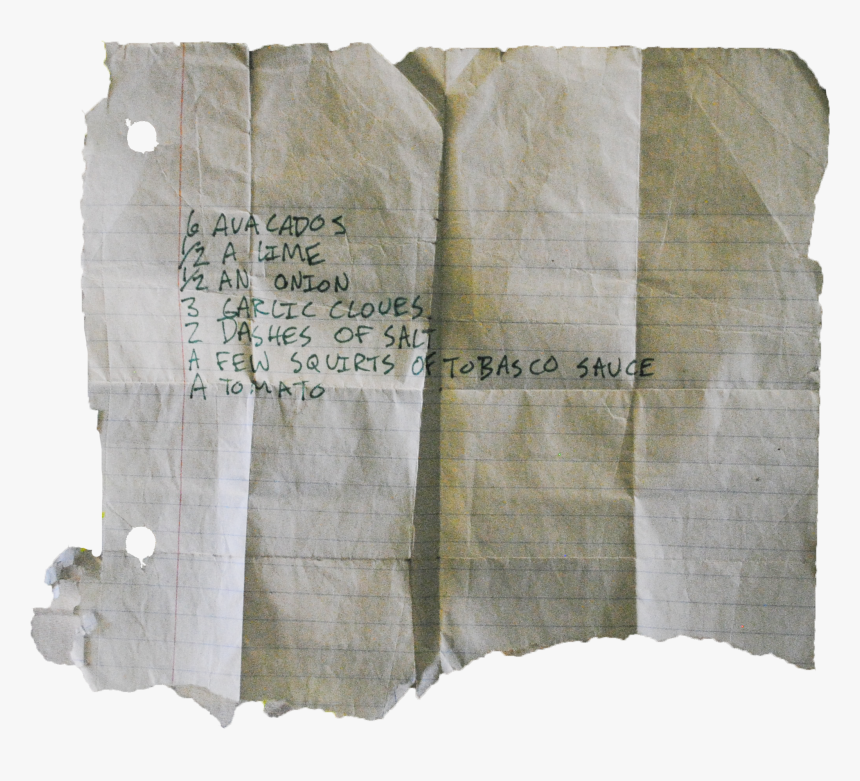 6 AVACADOS
1/2 A LIME
1/2 AN ONION
3 GARLIC CLOVES
2 DASHES OF SALT
A FEW SQUIRTS OF TOBASCO SAUCE
A TOMATO